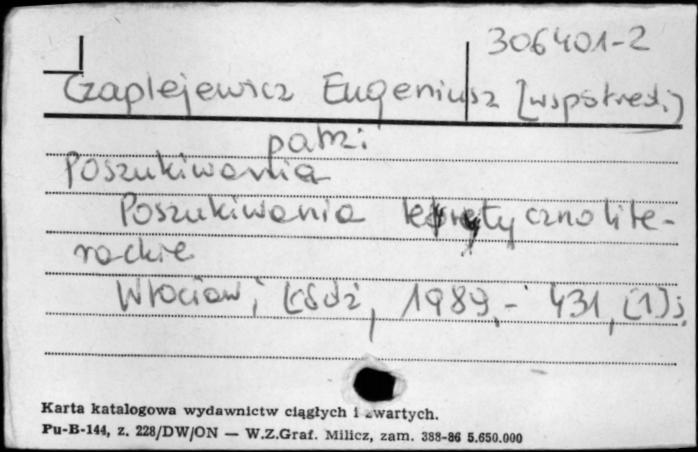 306401-2
Czaplejewicz Eugeniusz [współred.]
patrz:
Poszukiwania
Poszukiwania teoretycznolite-
rackie
Wrocław; Łódź, 1989.- 431,[1]s.
Karta katalogowa wydawnictw ciągłych i zwartych.
Pu-B-144, z. 228/DW/ON — W.Z.Graf. Milicz, zam. 388-86 5.650.000